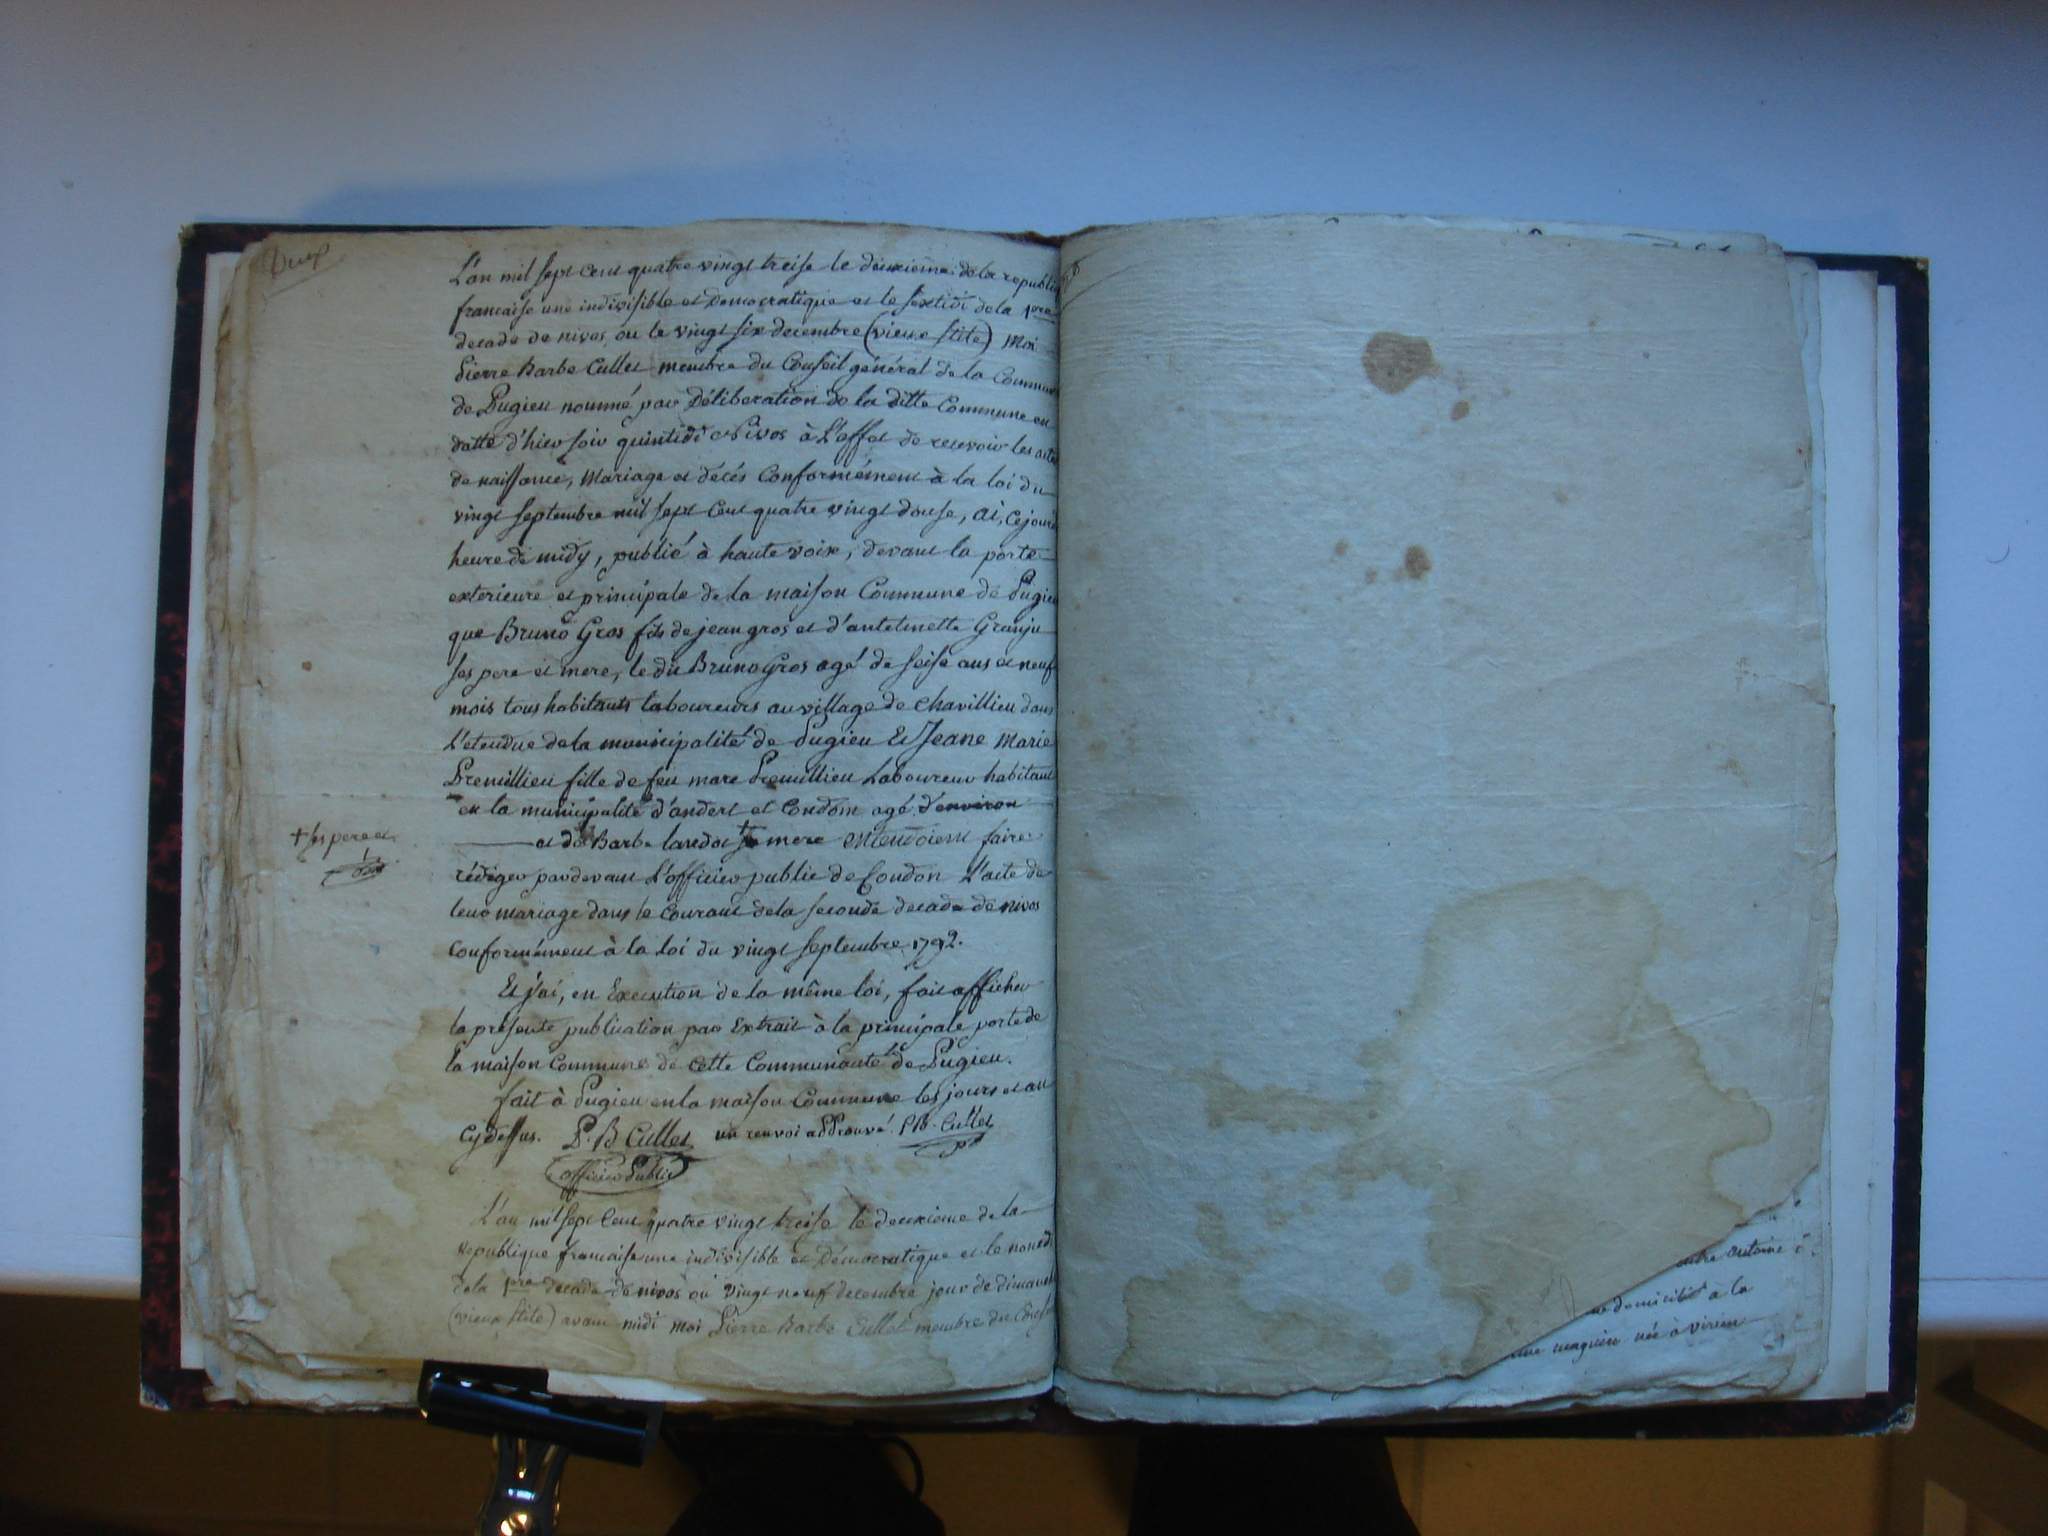 L'an mil sept cent quatre vingt treise le deuxieme de la republi
francaise une indivisible et democratique et le sextidi de la 1ere
decade de nivos, ou le vingt six decembre (vieux stile) Moi
Pierre Barbe Cullet membre du Conseil général de la Commune
de Pugieu nommé par Déliberation de la ditte Commune en
datte d'hier soir quintidi Nivos à L'effet de recevoir les acte
de naissance, Mariage et décés Conformément à la loi du
vingt septembre mil sept Cent quatre vingt douse, ai, cejour
heure de midy, publié à haute voix, devant la porte
exterieure et principale de la maison Commune de Pugieu
que Bruno Gros fils de jean gros et d'antelmette Granju
ses pere et mere, le dit Bruno Gros agé de seise ans et neuf
mois tous habitants laboureurs au village de Chavillieu dans
L'etendue de la municipalité de Pugieu Et Jeane Marie
Premillieu fille de feu marc Premillieu Laboureur habitant
en la municipalité d'andert et Condon agé d'environ
+ ses pere et
et de Barbe laredot + mere entendoient faire
rédiger pardevant L'officier public de Condon L'acte de
leur mariage dans le Courant de la seconde decade de nivos
Conformément à la Loi du vingt septembre 1792.
Et j'ai, en Execution de la même loi, fait afficher
la présente publication par Extrait à la principale porte de
la maison Commune de cette Communauté de Pugieu.
fait à Pugieu en la maison Commune les jours et an
Cy dessus. P. B Cullet un renvoi approuvé. P B. Cullet
officier Public
L'an mil sept Cent quatre vingt treise le deuxieme de la
republique francaise une indivisible et Démocratique et le nonedi
de la 1ere decade de nivos ou vingt neuf decembre jour de dimanch
(vieux stile) avant midi moi Pierre Barbe Cullet membre du Conse
antoine
domicilié à la
née à virieu